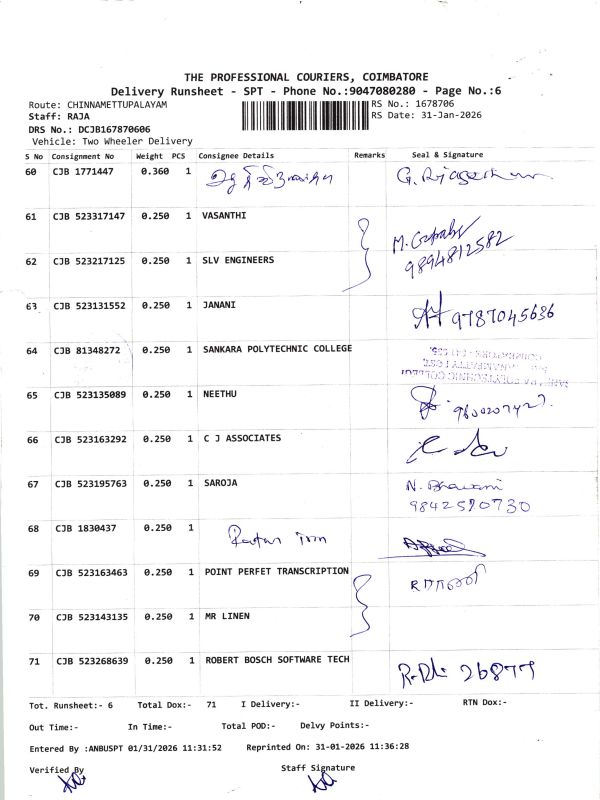 THE PROFESSIONAL COURIERS, COIMBATORE
Delivery Runsheet - SPT - Phone No.:9047080280 - Page No.:6
Route: CHINNAMETTUPALAYAM RS No.: 1678706
Staff: RAJA RS Date: 31-Jan-2026
DRS No.: DCJB167870606
Vehicle: Two Wheeler Delivery
S No Consignment No Weight PCS Consignee Details Remarks Seal & Signature
60 CJB 1771447 0.360 1
61 CJB 523317147 0.250 1 VASANTHI
9894812582
62 CJB 523217125 0.250 1 SLV ENGINEERS
63 CJB 523131552 0.250 1 JANANI 9787045636
64 CJB 81348272 0.250 1 SANKARA POLYTECHNIC COLLEGE
65 CJB 523135089 0.250 1 NEETHU
66 CJB 523163292 0.250 1 C J ASSOCIATES
67 CJB 523195763 0.250 1 SAROJA N. Bhavani
9842590730
68 CJB 1830437 0.250 1
69 CJB 523163463 0.250 1 POINT PERFET TRANSCRIPTION
70 CJB 523143135 0.250 1 MR LINEN
71 CJB 523268639 0.250 1 ROBERT BOSCH SOFTWARE TECH 26877
Tot. Runsheet:- 6 Total Dox:- 71 I Delivery:- II Delivery:- RTN Dox:-
Out Time:- In Time:- Total POD:- Delvy Points:-
Entered By :ANBUSPT 01/31/2026 11:31:52 Reprinted On: 31-01-2026 11:36:28
Verified By Staff Signature